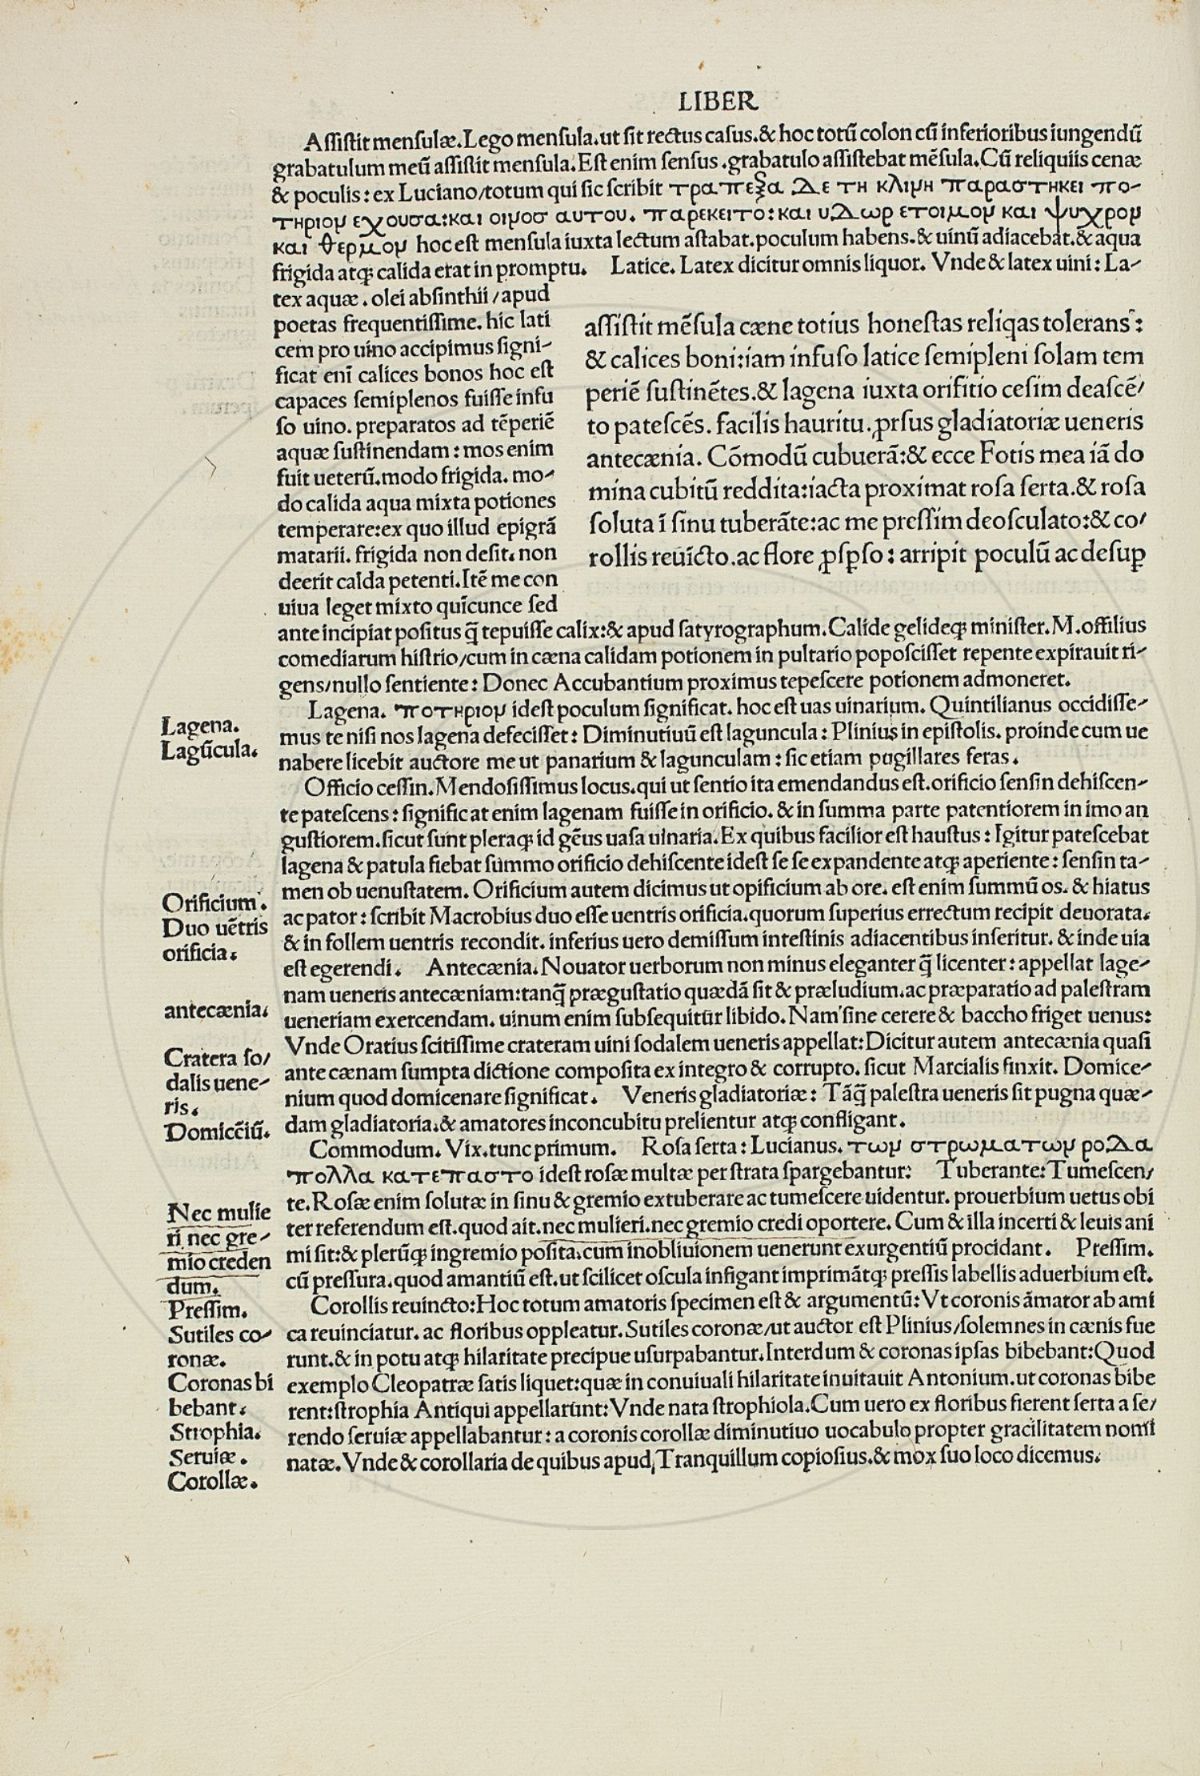 LIBER
Aſſiſtit menſulæ. Lego menſula. ut ſit rectus caſus. & hoc totũ colon cũ inferioribus iungendũ
grabatulum meũ aſſiſtit menſula. Eſt enim ſenſus. grabatulo aſſiſtebat mẽſula. Cũ reliquiis cenæ
& poculis: ex Luciano/totum qui ſic ſcribit τραπεξα Δε τη κλιμη παραστηκει πο-
τηριομ εχουσα: και οιμοσ αυτου. παρεκειτο: και υΔωρ ετοιμομ και ψυχρομ
και θερμομ hoc eſt menſula iuxta lectum aſtabat. poculum habens. & uinũ adiacebat. & aqua
frigida atq; calida erat in promptu. Latice. Latex dicitur omnis liquor. Vnde & latex uini: La-
tex aquæ. olei abſinthii/apud
poetas frequentiſſime. hic lati
cem pro uino accipimus ſigni-
ficat enĩ calices bonos hoc eſt
capaces ſemiplenos fuiſſe infu
ſo uino. preparatos ad tẽperiẽ
aquæ ſuſtinendam: mos enim
fuit ueterũ. modo frigida. mo-
do calida aqua mixta potiones
temperare: ex quo illud epigrã
matarii. frigida non deſit. non
deerit calda petenti. Itẽ me con
uiua leget mixto quĩcunce ſed
aſſiſtit mẽſula cæne totius honeſtas reliqas tolerans:
& calices boni: iam infuſo latice ſemipleni ſolam tem
periẽ ſuſtinẽtes. & lagena iuxta orifitio ceſim deaſcẽ/
to pateſcẽs. facilis hauritu. ꝓrſus gladiatoriæ ueneris
antecænia. Cõmodũ cubuerã: & ecce Fotis mea iã do
mina cubitũ reddita: iacta proximat roſa ſerta. & roſa
ſoluta ĩ ſinu tuberãte: ac me preſſim deoſculato: & co/
rollis reuĩcto. ac flore ꝓſꝑſo: arripit poculũ ac deſuꝑ
ante incipiat poſitus q̃ tepuiſſe calix: & apud ſatyrographum. Calide gelideq; miniſter. M. offilius
comediarum hiſtrio/cum in cæna calidam potionem in pultario popoſciſſet repente expirauit ri-
gens/nullo ſentiente: Donec Accubantium proximus tepeſcere potionem admoneret.
Lagena. ποτηριομ ideſt poculum ſignificat. hoc eſt uas uinarium. Quintilianus occidiſſe-
mus te niſi nos lagena defeciſſet: Diminutiuũ eſt laguncula: Plinius in epiſtolis. proinde cum ue
nabere licebit auctore me ut panarium & lagunculam: ſic etiam pugillares feras.
Officio ceſſin. Mendoſiſſimus locus. qui ut ſentio ita emendandus eſt. orificio ſenſin dehiſcen-
te pateſcens: ſignificat enim lagenam fuiſſe in orificio. & in ſumma parte patentiorem in imo an
guſtiorem. ſicut ſunt pleraq; id gẽus uaſa uinaria. Ex quibus facilior eſt hauſtus: Igitur pateſcebat
lagena & patula fiebat ſummo orificio dehiſcente ideſt ſe ſe expandente atq; aperiente: ſenſin ta-
men ob uenuſtatem. Orificium autem dicimus ut opificium ab ore. eſt enim ſummũ os. & hiatus
ac pator: ſcribit Macrobius duo eſſe uentris orificia. quorum ſuperius errectum recipit deuorata.
& in follem uentris recondit. inferius uero demiſſum inteſtinis adiacentibus inſeritur. & inde uia
eſt egerendi. Antecænia. Nouator uerborum non minus eleganter q̃ licenter: appellat lage-
nam ueneris antecæniam: tanq̃ præguſtatio quædã ſit & præludium. ac præparatio ad paleſtram
ueneriam exercendam. uinum enim ſubſequitur libido. Nam ſine cerere & baccho friget uenus:
Vnde Oratius ſcitiſſime crateram uini ſodalem ueneris appellat: Dicitur autem antecænia quaſi
ante cænam ſumpta dictione compoſita ex integro & corrupto. ſicut Marcialis finxit. Domice-
nium quod domicenare ſignificat. Veneris gladiatoriæ: Tãq̃ paleſtra ueneris ſit pugna quæ-
dam gladiatoria. & amatores inconcubitu prelientur atq; confligant.
Commodum. Vix. tunc primum. Roſa ſerta: Lucianus. τωμ στρωματωμ ροΔα
πολλα κατεπαστο ideſt roſæ multæ per ſtrata ſpargebantur: Tuberante: Tumeſcen/
te. Roſæ enim ſolutæ in ſinu & gremio extuberare ac tumeſcere uidentur. prouerbium uetus obi
ter referendum eſt. quod ait. nec mulieri. nec gremio credi oportere. Cum & illa incerti & leuis ani
mi ſit: & plerũq; ingremio poſita. cum inobliuionem uenerunt exurgentiũ procidant. Preſſim.
cũ preſſura. quod amantiũ eſt. ut ſcilicet oſcula infigant imprimãtq; preſſis labellis aduerbium eſt.
Corollis reuincto: Hoc totum amatoris ſpecimen eſt & argumentũ: Vt coronis ãmator ab ami
ca reuinciatur. ac floribus oppleatur. Sutiles coronæ/ut auctor eſt Plinius/ſolemnes in cænis fue
runt. & in potu atq; hilaritate precipue uſurpabantur. Interdum & coronas ipſas bibebant: Quod
exemplo Cleopatræ ſatis liquet: quæ in conuiuali hilaritate inuitauit Antonium. ut coronas bibe
rent: ſtrophia Antiqui appellarunt: Vnde nata ſtrophiola. Cum uero ex floribus fierent ſerta a ſe/
rendo ſeruiæ appellabantur: a coronis corollæ diminutiuo uocabulo propter gracilitatem nomĩ
natæ. Vnde & corollaria de quibus apud Tranquillum copioſius. & mox ſuo loco dicemus.
Lagena.
Lagũcula.
Orificium.
Duo uẽtris
orificia.
antecænia.
Cratera ſo/
dalis uene-
ris.
Domicẽiũ.
Nec mulie
ri nec gre-
mio creden
dum.
Preſſim.
Sutiles co-
ronæ.
Coronas bi
bebant.
Strophia.
Seruiæ.
Corollæ.